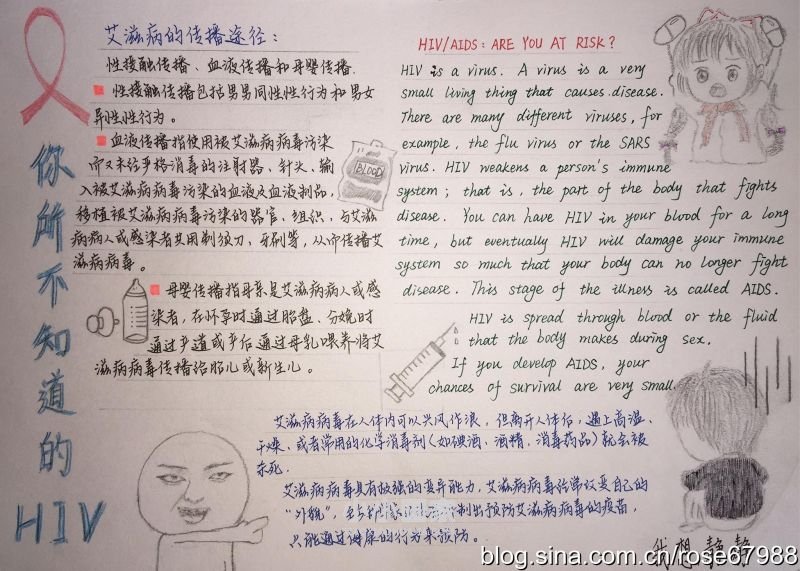 你所不知道的HIV
艾滋病的传播途径：
性接触传播、血液传播和母婴传播.
性接触传播包括男男同性性行为和男女
异性性行为。
血液传播指使用被艾滋病病毒污染
而又未经严格消毒的注射器、针头、输
入被艾滋病病毒污染的血液及血液制品,
移植被艾滋病病毒污染的器官、组织,与艾滋
病病人或感染者共用剃须刀、牙刷等,从而传播艾
滋病病毒。
BLOOD
母婴传播指母亲是艾滋病病人或感
染者,在怀孕时通过胎盘、分娩时
通过产道或产后通过母乳喂养将艾
滋病病毒传播给胎儿或新生儿。
HIV/AIDS: ARE YOU AT RISK?
HIV is a virus. A virus is a very
small living thing that causes disease.
There are many different viruses, for
example, the flu virus or the SARS
virus. HIV weakens a person's immune
system; that is, the part of the body that fights
disease. You can have HIV in your blood for a long
time, but eventually HIV will damage your immune
system so much that your body can no longer fight
disease. This stage of the illness is called AIDS.
HIV is spread through blood or the fluid
that the body makes during sex.
If you develop AIDS, your
chances of survival are very small.
艾滋病病毒在人体内可以兴风作浪,但离开人体后,遇上高温、
干燥、或者常用的化学消毒剂(如碘酒、酒精、消毒药品)就会被
杀死.
艾滋病病毒具有极强的变异能力,艾滋病病毒经常改变自己的
"外貌",制出预防艾滋病病毒的疫苗,
只能通过健康的行为来预防。
我想静静
blog.sina.com.cn/rose67988